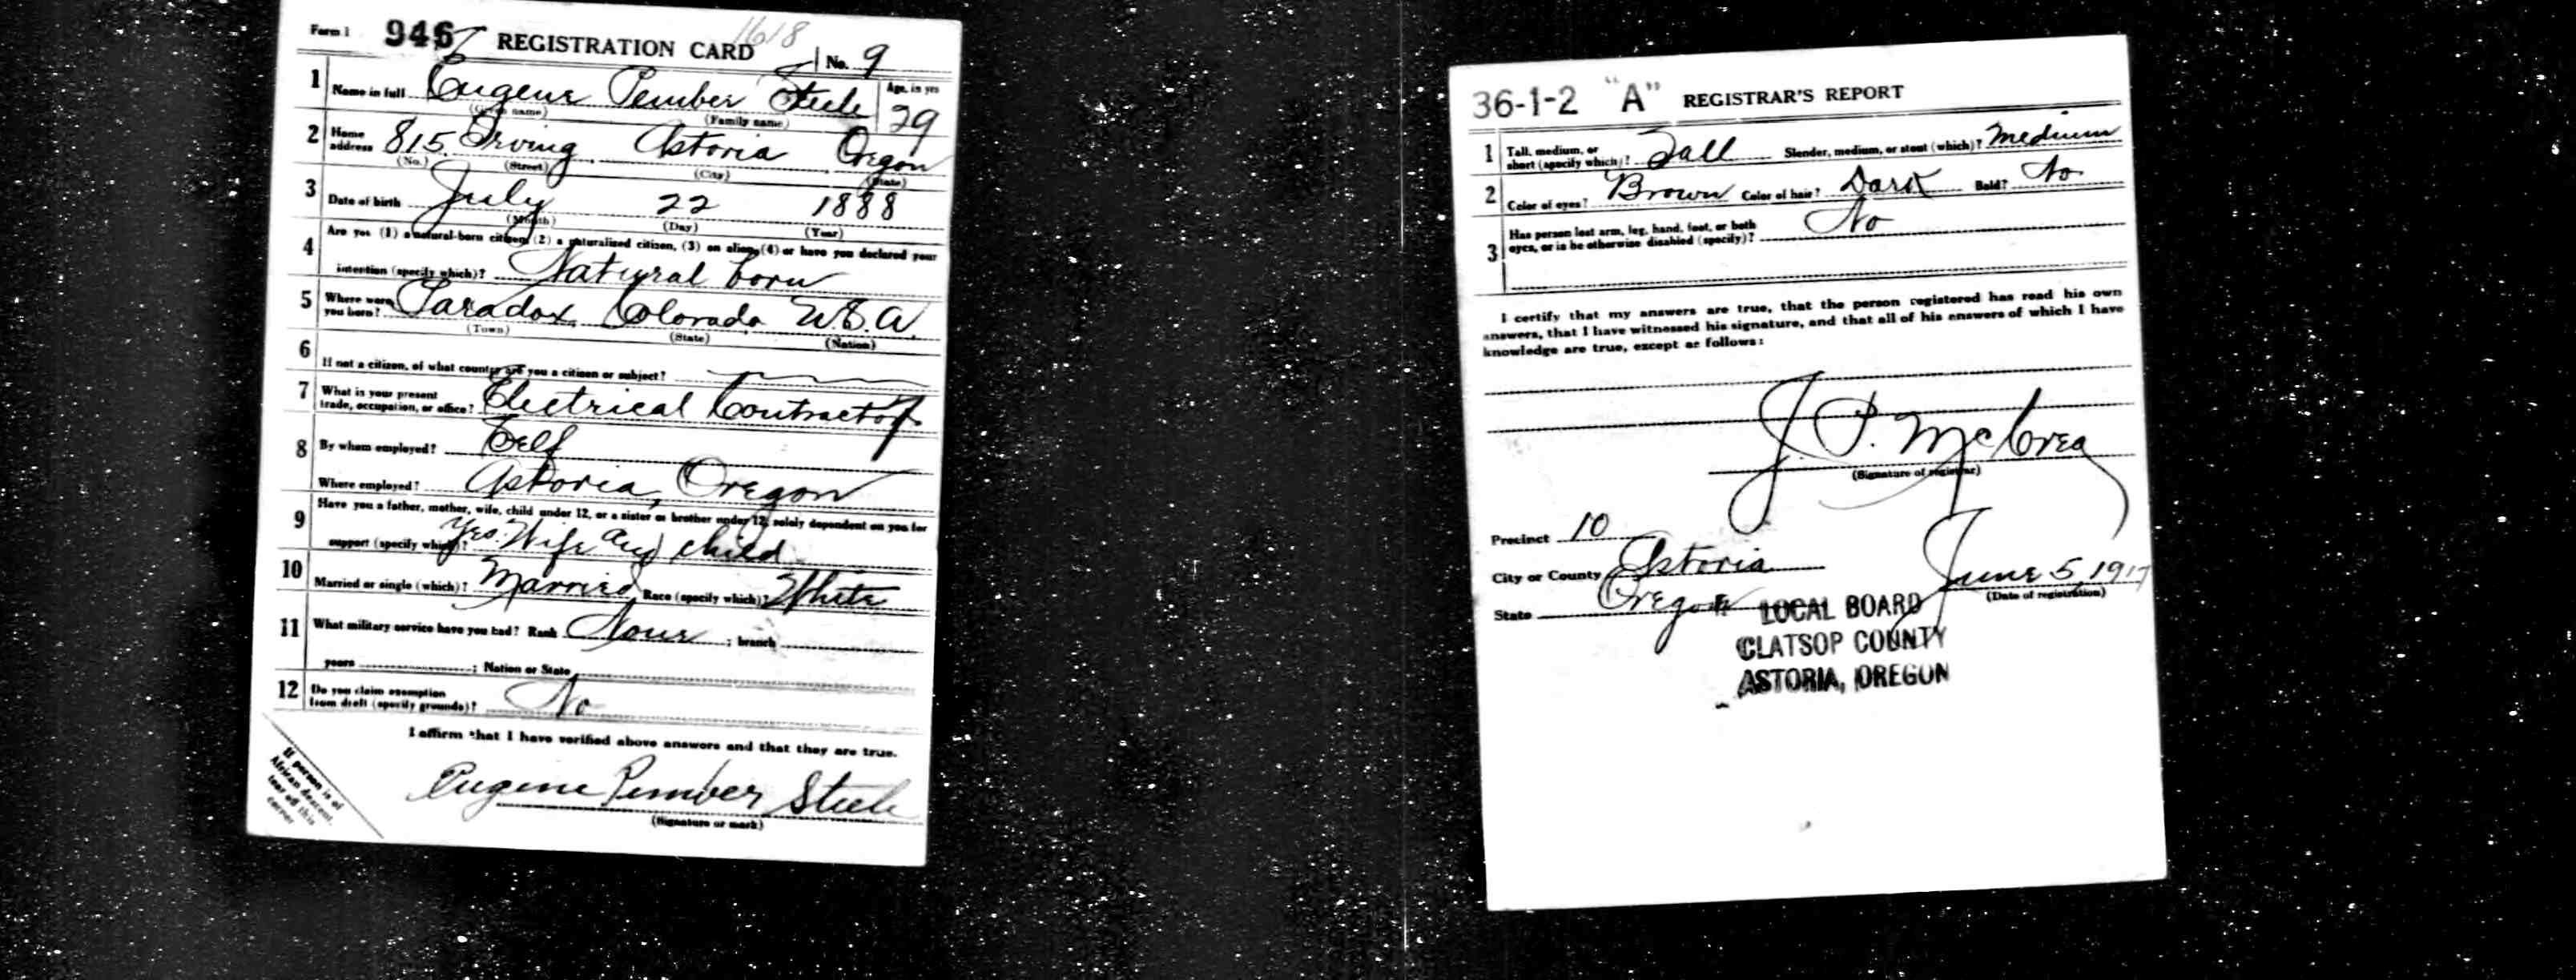 1618
Form 1 946 REGISTRATION CARD No. 9
1 Name in full Eugene Pember Steele Age, in yrs
(Given name) (Family name) 29
2 Home address 815 Irving Astoria Oregon
(No.) (Street) (City) (State)
3 Date of birth July 22 1888
(Month) (Day) (Year)
4 Are you (1) a natural-born citizen, (2) a naturalized citizen, (3) an alien, (4) or have you declared your
intention (specify which)? Natural born
5 Where were you born? Paradox Colorado U.S.A
(Town) (State) (Nation)
6 If not a citizen, of what country are you a citizen or subject?
7 What is your present trade, occupation, or office? Electrical Contractor
8 By whom employed? Self
Where employed? Astoria, Oregon
9 Have you a father, mother, wife, child under 12, or a sister or brother under 12, solely dependent on you for
support (specify which)? Yes. Wife and child
10 Married or single (which)? Married Race (specify which)? White
11 What military service have you had? Rank None ; branch
years ; Nation or State
12 Do you claim exemption from draft (specify grounds)? No
I affirm that I have verified above answers and that they are true.
Eugene Pember Steele
(Signature or mark)
If person is of
African descent,
tear off this
corner
36-1-2 "A" REGISTRAR'S REPORT
1 Tall, medium, or short (specify which)? Tall Slender, medium, or stout (which)? Medium
2 Color of eyes? Brown Color of hair? Dark Bald? No
3 Has person lost arm, leg, hand, foot, or both eyes, or is he otherwise disabled (specify)? No
I certify that my answers are true, that the person registered has read his own
answers, that I have witnessed his signature, and that all of his answers of which I have
knowledge are true, except as follows:
J. P. McCrea
(Signature of registrar)
Precinct 10
City or County Astoria June 5, 1917
State Oregon (Date of registration)
LOCAL BOARD
CLATSOP COUNTY
ASTORIA, OREGON